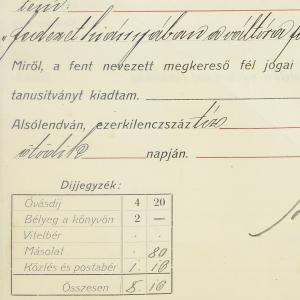 lem:
"fedezet hiányjában a váltóra f
Miről, a fent nevezett megkereső fél jogai
tanusitványt kiadtam.
Alsólendván, ezerkilenczszáz tiz
ötödik napján.
Díjjegyzék:
Óvásdíj 4 20
Bélyeg a könyvön 2 —
Vitelbér . .
Másolat . 80
Közlés és postabér 1. 16
Összesen 8. 16